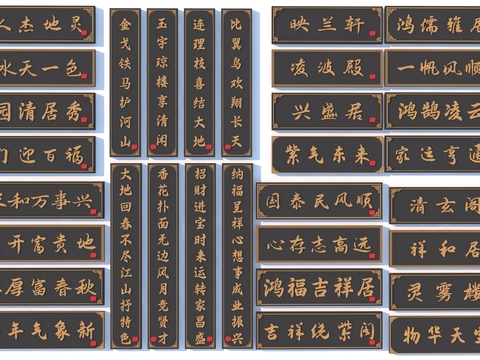 人杰地灵
水天一色
园清居秀
门迎百福
和万事兴
开富贵地
厚富春秋
年气象新
金戈铁马护河山
玉宇琼楼享清闲
连理枝喜结大地
比翼鸟欢翔长天
大地回春不尽江山抒特色
香花扑面无边风月竞贤才
招财进宝时来运转家昌盛
纳福呈祥心想事成业振兴
映兰轩
凌波殿
兴盛居
紫气东来
国泰民风顺
心存志高远
鸿福吉祥居
吉祥绕紫阁
鸿儒雅居
一帆风顺
鸿鹄凌云
家运亨通
清玄阁
祥和居
灵雾楼
物华天宝